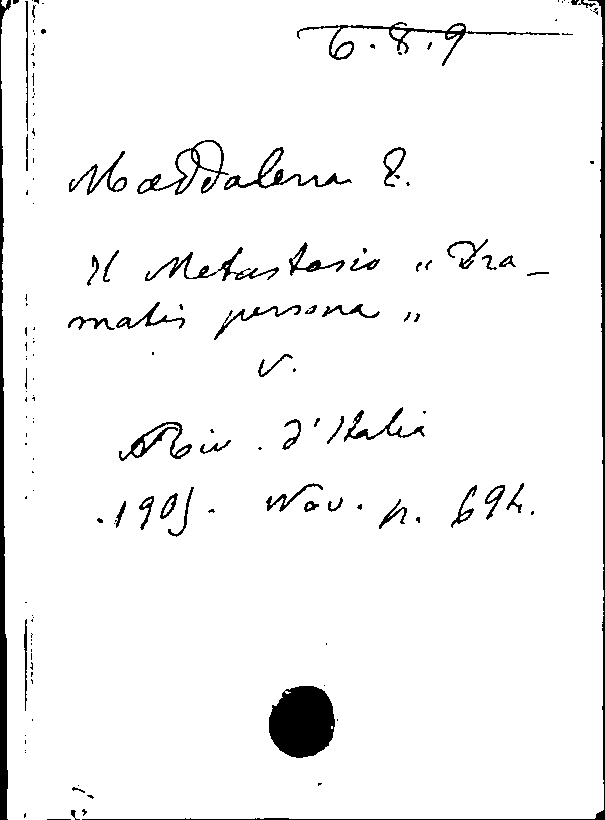 6.8.9
Maddalena E.
Il Metastasio „Dra-
matis persona„
v.
Riv. d'Italia
1905. Nov. p. 694.